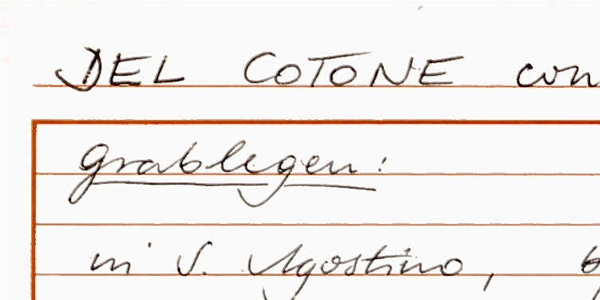 DEL COTONE con
Grablegen:
in S. Agostino,